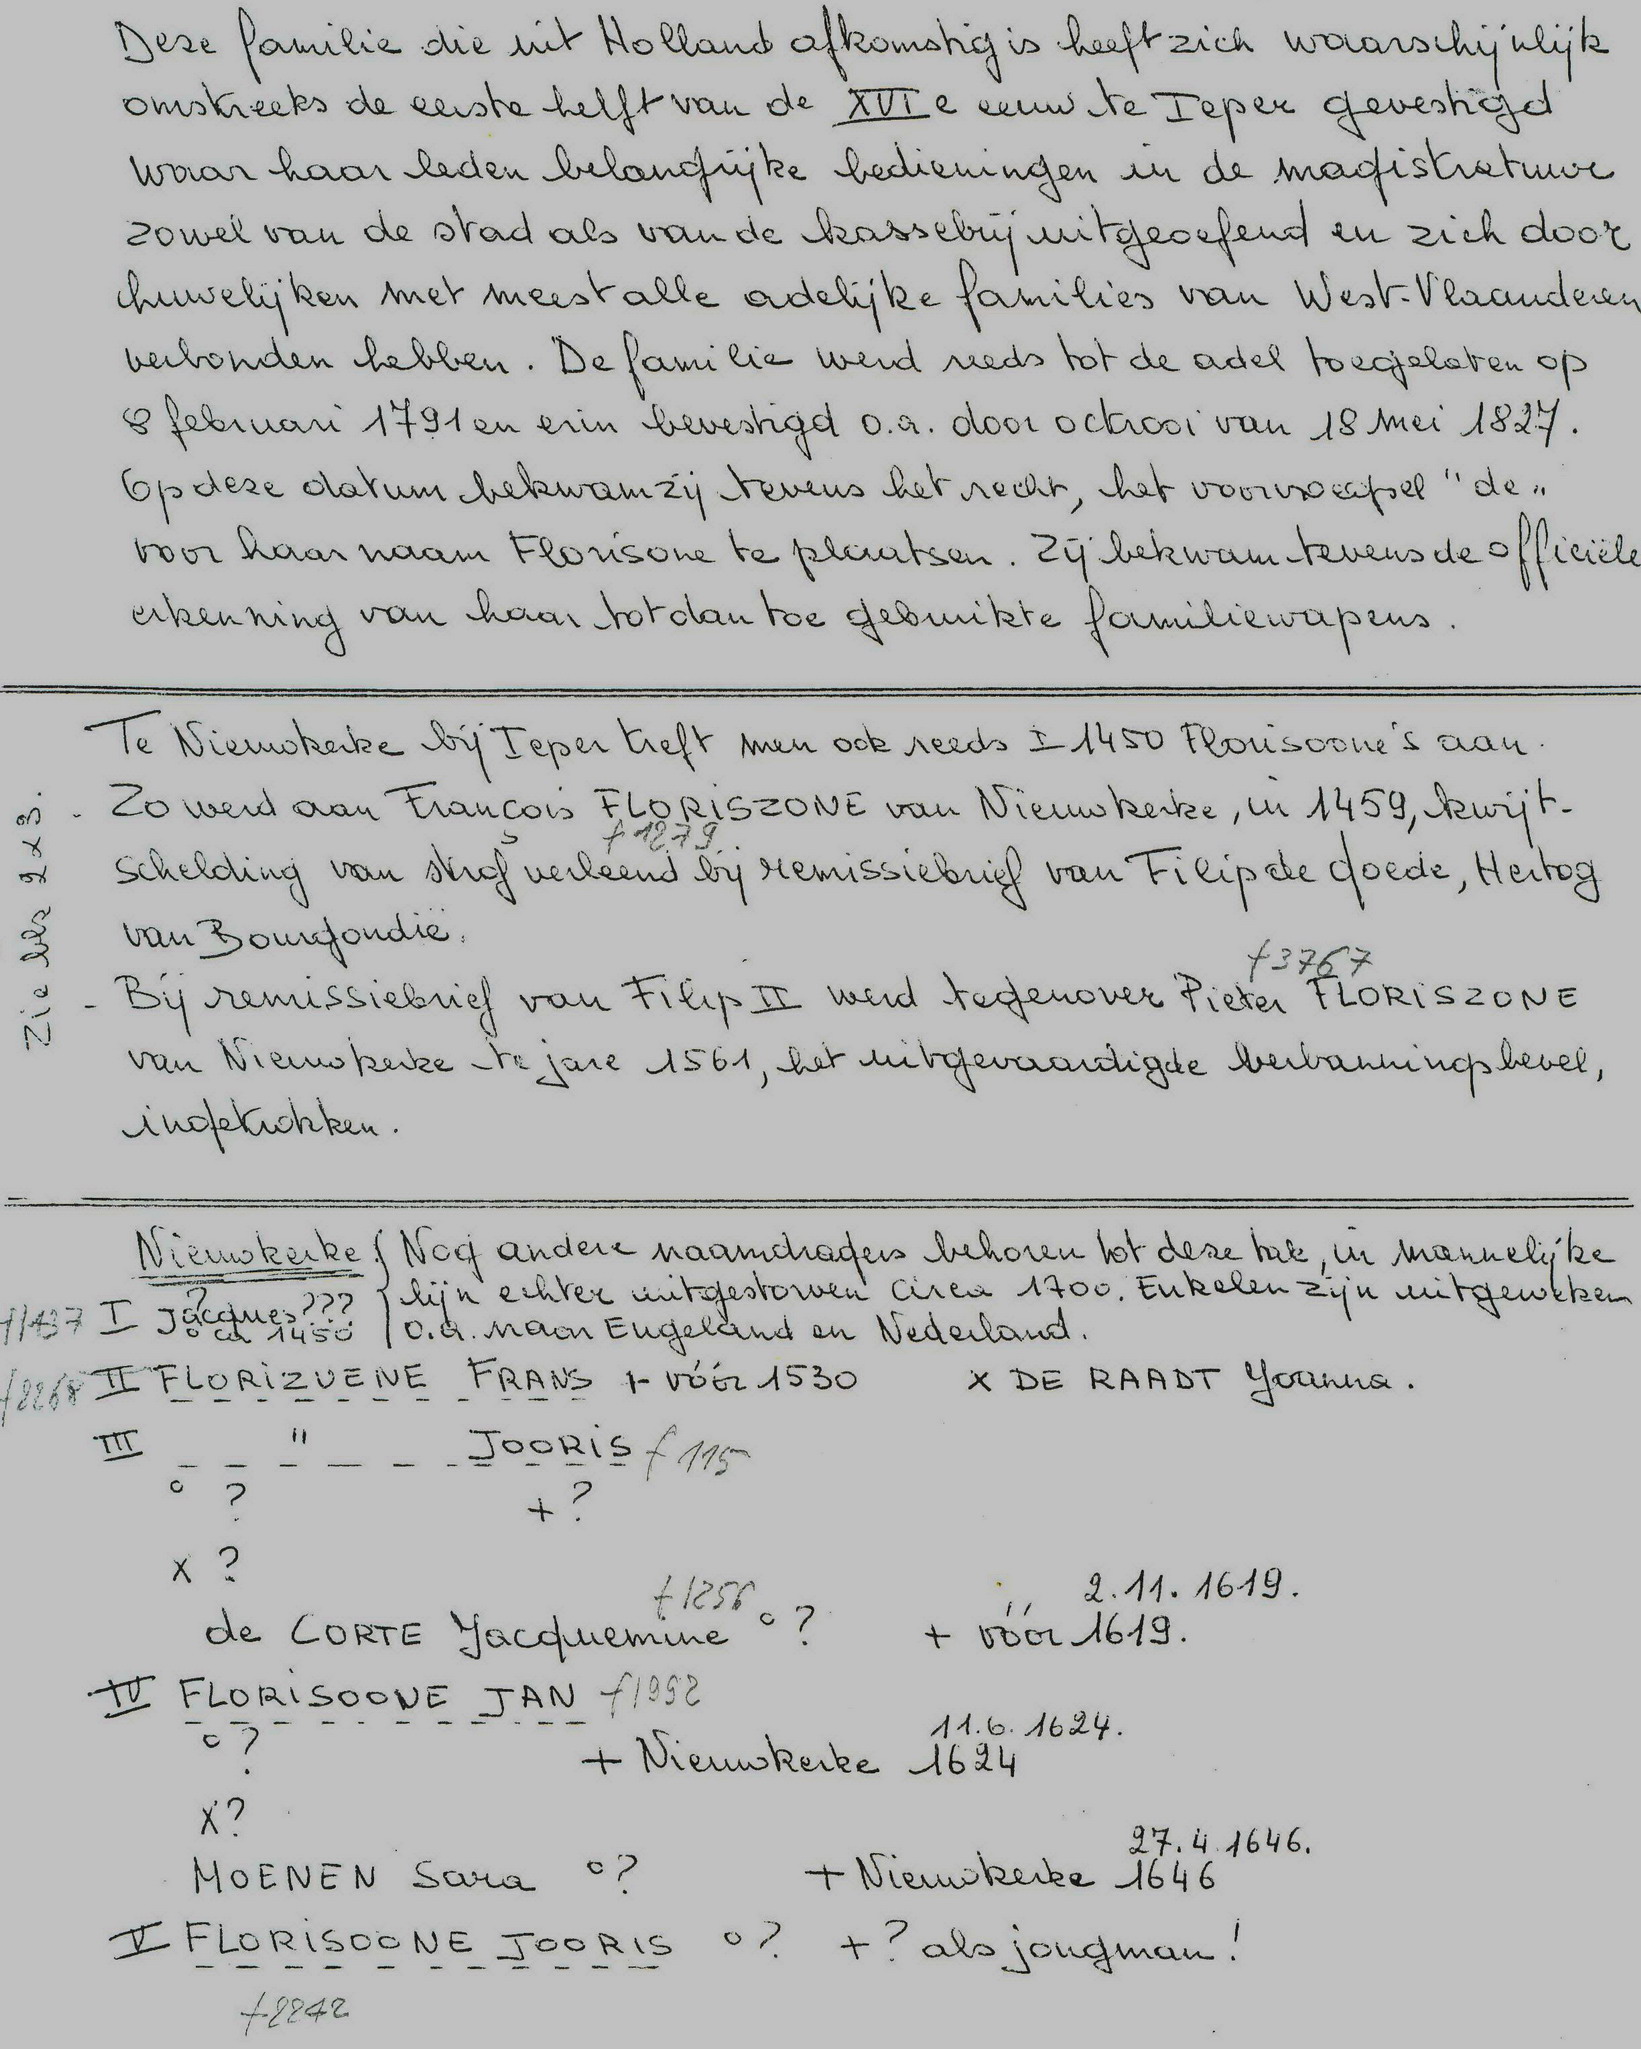 Deze familie die uit Holland afkomstig is heeft zich waarschijnlijk
omstreeks de eerste helft van de XVIe eeuw te Ieper gevestigd
waar haar leden belangrijke bedieningen in de magistratuur
zowel van de stad als van de kasselrij uitgeoefend en zich door
huwelijken met meest alle adelijke families van West-Vlaanderen
verbonden hebben. De familie werd reeds tot de adel toegelaten op
8 februari 1791 en erin bevestigd o.a. door octrooi van 18 mei 1827.
Op deze datum bekwam zij tevens het recht, het voorvoegsel "de"
voor haar naam Florisone te plaatsen. Zij bekwam tevens de officiële
erkenning van haar tot dan toe gebruikte familiewapens.
Te Nieuwkerke bij Ieper treft men ook reeds ± 1450 Florisoone's aan.
Zie blz 2 x 3.
- Zo werd aan François FLORISZONE van Nieuwkerke, in 1459, kwijt-
f 1279
schelding van straf verleend bij remissiebrief van Filip de Goede, Hertog
van Bourgondië.
f 3767
- Bij remissiebrief van Filip II werd tegenover Pieter FLORISZONE
van Nieuwkerke te jare 1561, het uitgevaardigde verbanningsbevel,
ingetrokken.
Nieuwkerke { Nog andere naamdragers behoren tot deze tak, in mannelijke
lijn echter uitgestorven circa 1700. Enkelen zijn uitgeweken
f1437 I Jacques ??? o.a. naar Engeland en Nederland.
° ca 1450
f2268 II FLORIZUENE FRANS + vóór 1530 x DE RAADT Yoanna.
III " JOORIS f 115
° ? + ?
x ?
f 1256 2.11.1619.
de CORTE Jacquemine ° ? + vóór 1619.
IV FLORISOONE JAN f1992
° ? 11.6.1624.
+ Nieuwkerke 1624
x ?
27.4.1646.
MOENEN Sara ° ? + Nieuwkerke 1646
V FLORISOONE JOORIS ° ? + ? als jongman!
f2242